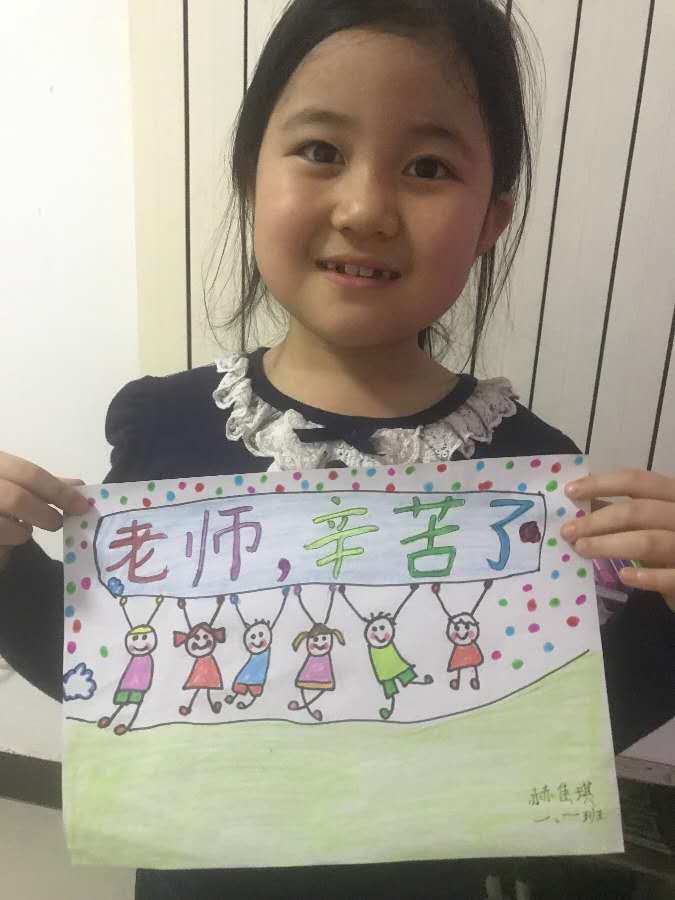 老师,辛苦了
赫隹琪
一、一班